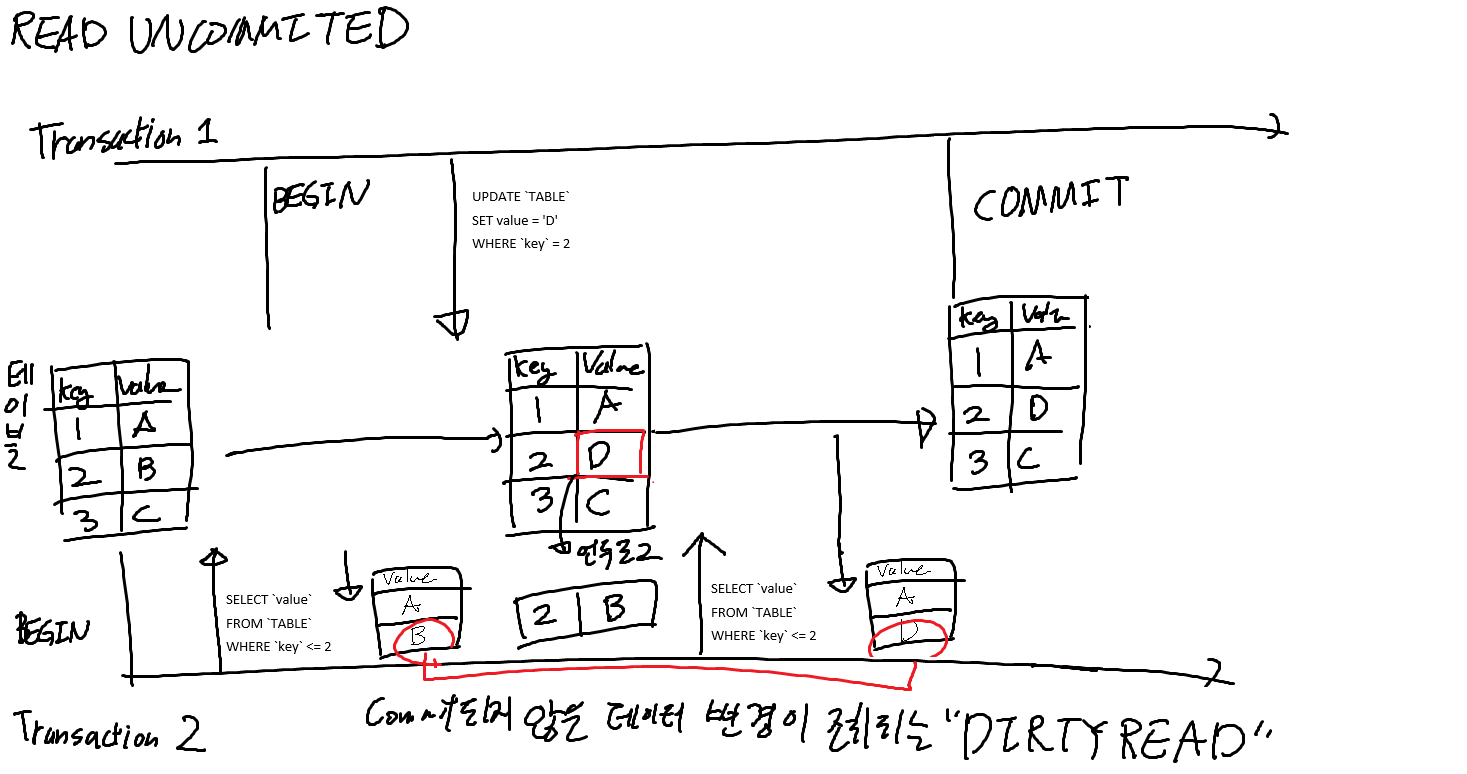 READ UNCOMMITED
Transaction 1
BEGIN
UPDATE `TABLE`
SET value = 'D'
WHERE `key` = 2
COMMIT
테이블
key Value
1 A
2 B
3 C
key Value
1 A
2 D
3 C
key
1 A
2 D
3 C
언두로그
2 B
BEGIN
SELECT `value`
FROM `TABLE`
WHERE `key` <= 2
Value
A
B
SELECT `value`
FROM `TABLE`
WHERE `key` <= 2
Value
A
D
Transaction 2
Commit되지 않은 데이터 변경이 "DIRTY READ"